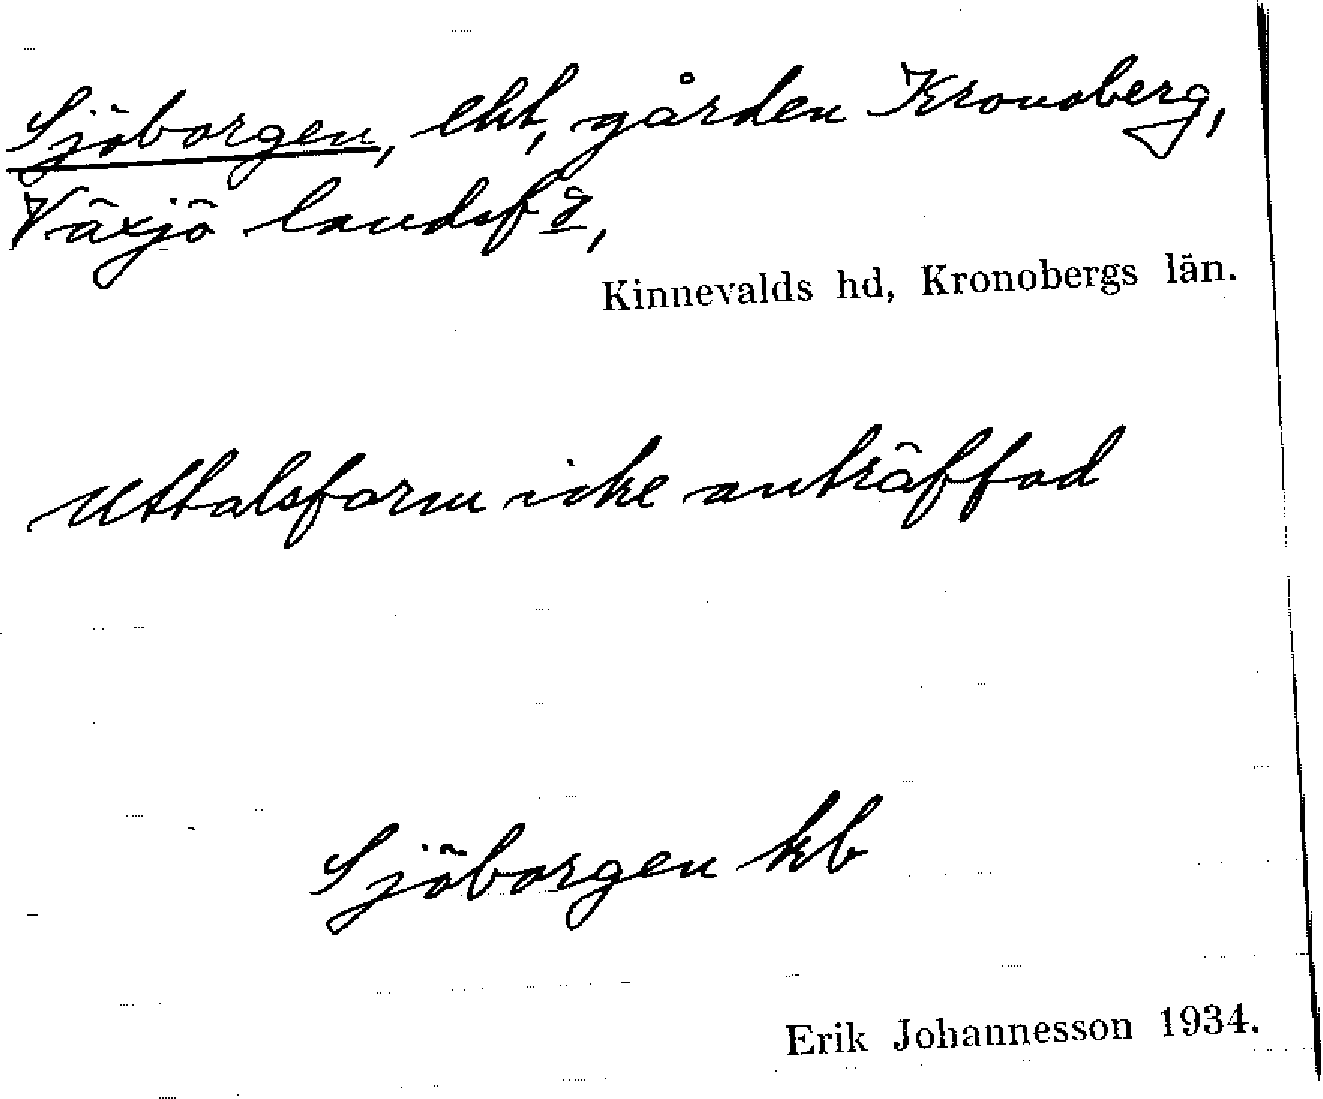 Sjöborgen, eht, gården Kronoberg,
Växjö landsf g,
Kinnevalds hd, Kronobergs län.
Uttalsform icke anträffad
Sjöborgen kb
Erik Johannesson 1934.